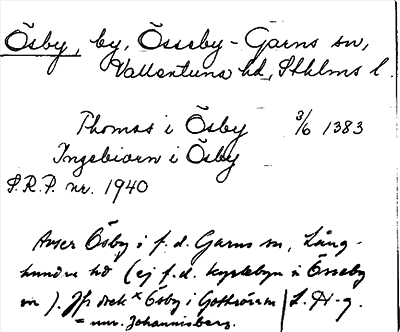 Ösby, by, Össeby-Garns sn,
Vallentuna hd, Sthlms l.
Thomas i Ösby 3/6 1383
Ingebiorn i Ösby
S.R.P. nr. 1940
Avser Ösby i f.d. Garns sn, Lång-
hundra hd (ej f.d. kyrkbyn i Össeby
sn). Jfr dock × Ösby i Gottröra
= nuv. Johannisberg.